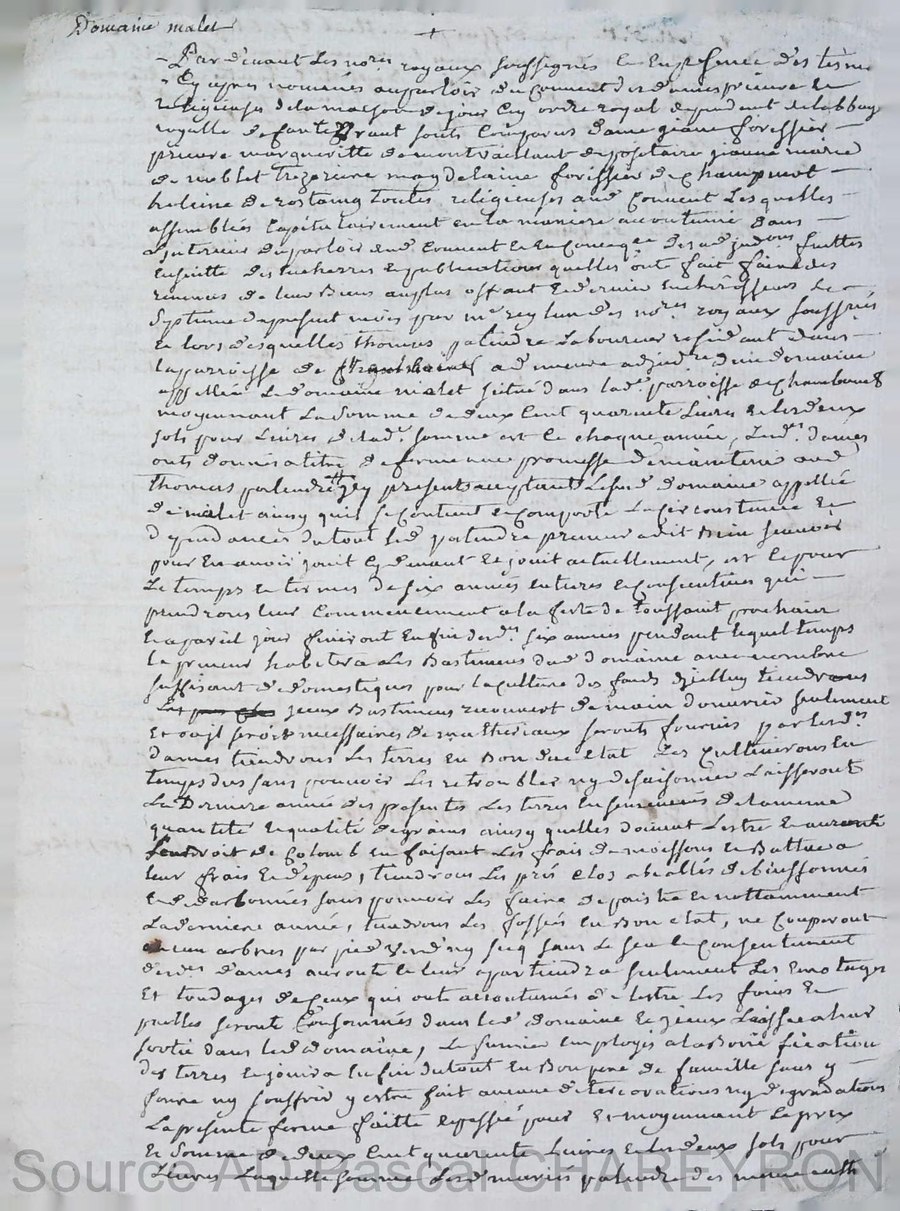 Domaine malet
Par devant les no.res royaux soussignés et en presence des tesm.
Cy apres només au parloir du couvent des dames prieure et
religieuses de la maison de jourcey ordre royal dependant de labbay
royalle de fontevraut sonts comparus dame jeane forissier
prieure margueritte de montvaillant depositaire jeanne marie
de noblet trezoriere magdelaine forissier de champvert
heleine de rostaing toutes religieuses aud couvent lesquelles
assemblés capitulairement en la maniere acoutumée dans
linterieur du parloir dud couvent et en conseq.ce des adjud.ons faittes
ensuitte des encherres et publications quelles onts fait faire des
revenus de leur biens au plus offrant et dernier encherisseurs le
septieme du present mois par m.e reylun des no.res royaux soussignés
et lors desquelles thomas palandre laboureur residant dans
la parroisse de a demeuré adjud.re du domaine
appellé le domaine malet situé dans lad.e parroisse de chambœuf
moyennant la somme de deux cent quarente livres et les deux
sols pour livres de lad.e somme et ce chaque année, lesd.es dames
onts données a titre de ferme avec promesse de maintenir aud
thomas palandre icy present acceptant led domaine appellé
de malet ainsy quil se contient et comporte en circonstance et
dependances du tout led palandre preneur a dit bien scavoir
pour en avoir jouit cy devant et jouit actuellement, et ce pour
le temps et termes de six années entieres et consecutives qui
prendronts leur commencement a la feste de toussaint prochain
et a pareil jour finiront en fin desd.es six années pendant lequel temps
le preneur habitera les bastiments dud domaine avec nombre
suffisant de domestiques pour la culture des fonds dicelluy tiendronts
les iceux bastiments recouvert de main douvrier seulement
et ou il seroit necessaires de matheriaux seronts fournis par lesd.es
dames tiendronts les terres en bon dud etat les cultiverons en
temps dus sans pouvoir les retroubler ny desaisonner laisseront
la derniere année des presentes les terres ensemencés de la meme
quantité et qualité de grains ainsy quelles doivent lestre et auronts
droit de colomb en faisant les frais de moissons et battues a
leur frais et depens, tiendronts les prés clos de buissonnés
et sans pouvoir les faire depaistre et nottamment
la derniere année, tiendronts les fossés en bon etat, ne couperont
aucun arbres par pied verd ny secq sans le sceu et consentement
desd.es dames auronts et leur apartiendra seulement les emotages
et tondages de ceux qui onts accoutumés de lestre les foins et
pailles seronts consommés dans led domaine et iceux laissera hors
sortie dans led domaine, le fumier employés a la bonnification
des terres et jouira en fin du tout en bon pere de famille sans y
faire ny souffrir y estre fait aucune deteriorations ny degradations
la presente ferme faitte et passée pour et moyennant le prix
et somme de deux cent quarente livres et les deux sols pour
livres laquelle somme led mariés palandre des meme auth

Source AD Pascal CHAREYRON